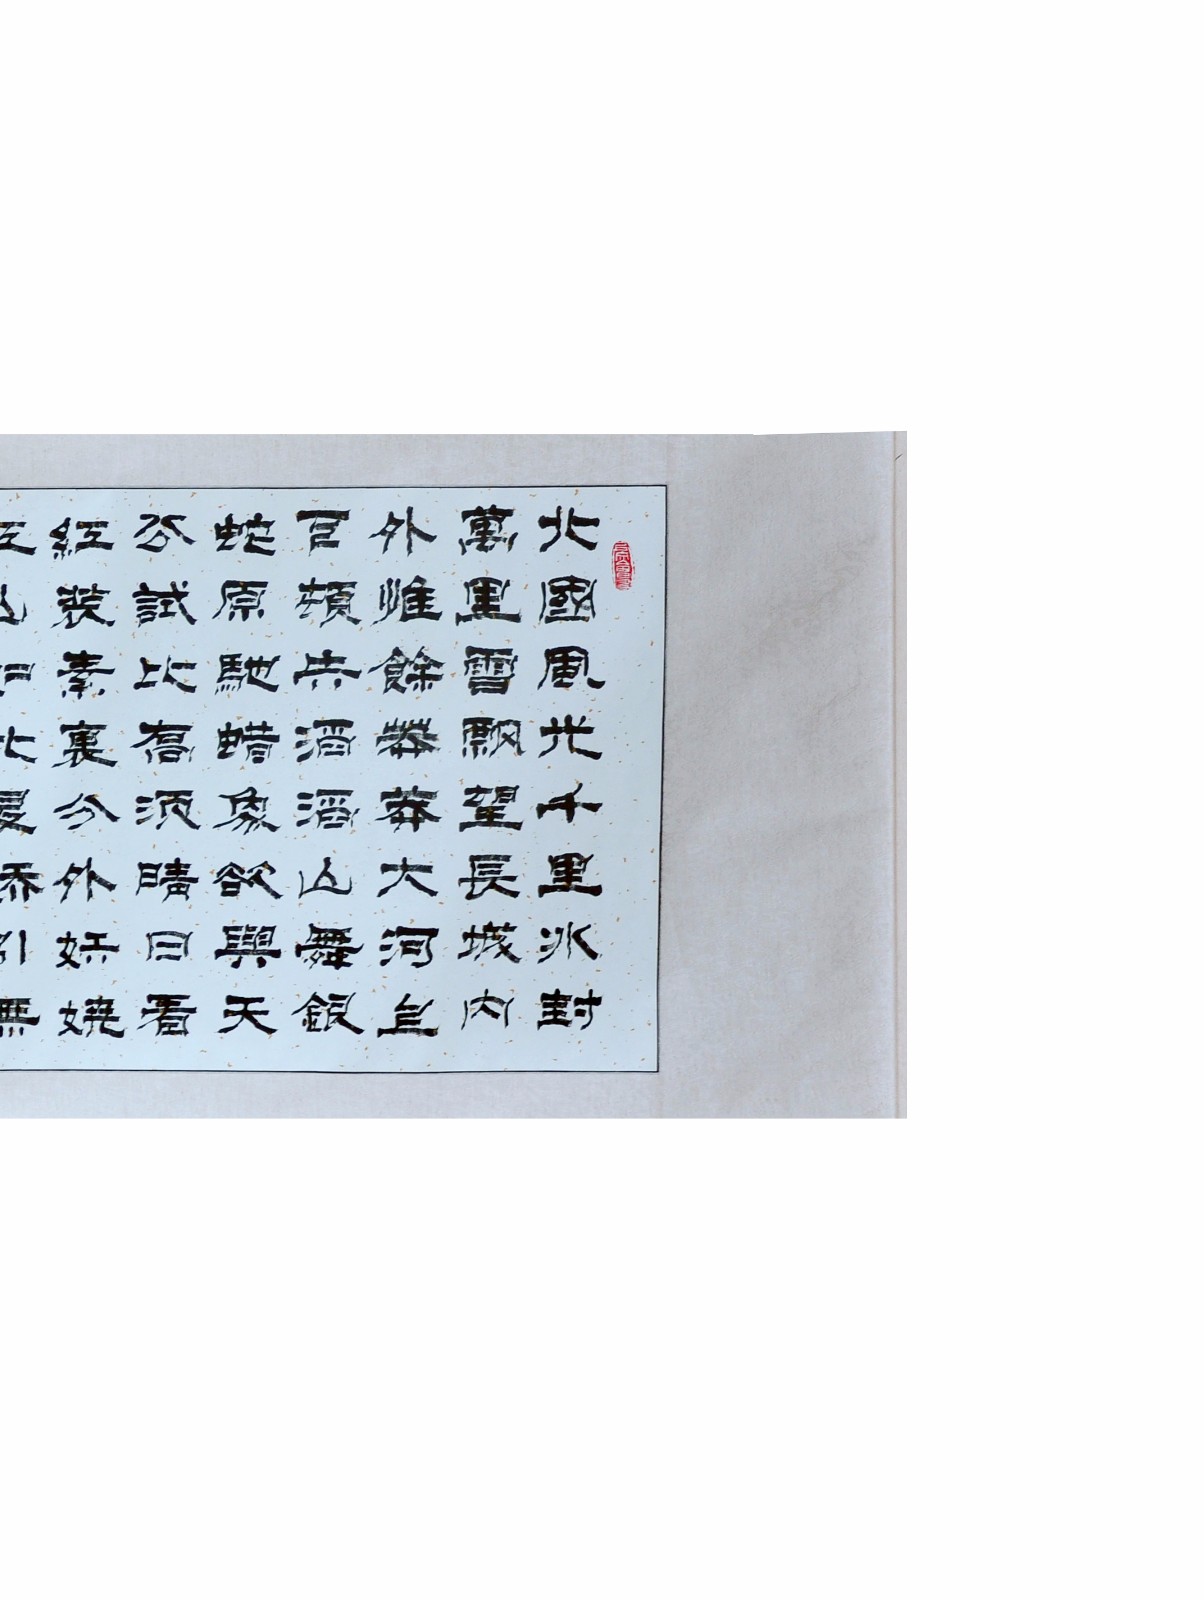 北國風光千里冰封
萬里雪飄望長城內
外惟餘莽莽大河上
下頓失滔滔山舞銀
蛇原馳蜡象欲與天
公試比高須晴日看
紅裝素裏分外妖嬈
無